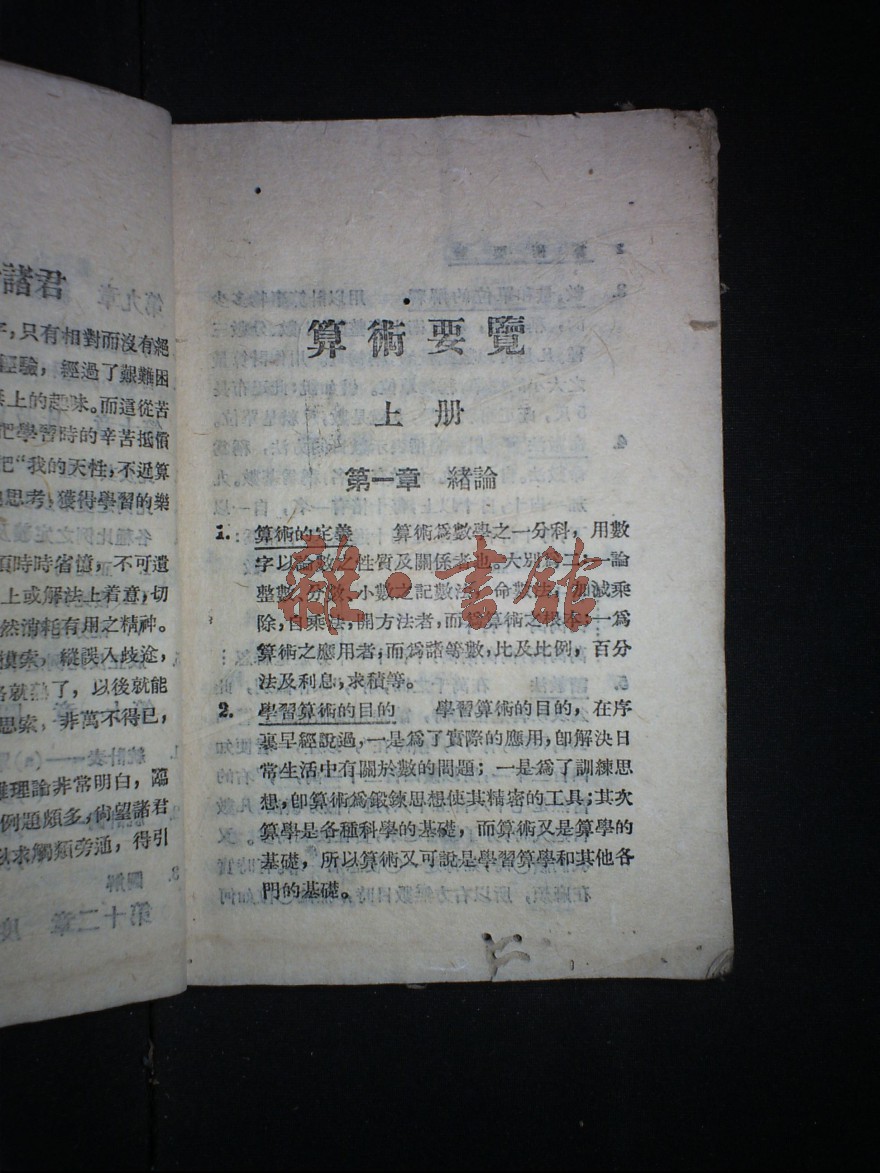 諸君
，只有相對而沒有絕
經驗，經過了艱難困
上的趣味。而這從苦
把學習時的辛苦抵償
把“我的天性，不近算
思考，獲得學習的樂
須時時省憶，不可遺
上或解法上着意，切
然消耗有用之精神。
摸索，縱誤入歧途，
就熟了，以後就能
思索，非萬不得已，
理論非常明白，臨
例題頗多，尙望諸君
以求觸類旁通，得引
算術要覽
上册
第一章 緒論
1. 算術的定義 算術爲數學之一分科，用數
字以論數之性質及關係者也。大別爲二：一論
整數、分數、小數之記數法，命數法，加減乘
除，自乘法，開方法者，而爲算術之根本；一爲
算術之應用者，而爲諸等數，比及比例，百分
法及利息，求積等。
2. 學習算術的目的 學習算術的目的，在序
裏早經說過，一是爲了實際的應用，卽解決日
常生活中有關於數的問題；一是爲了訓練思
想，卽算術爲鍛鍊思想使其精密的工具；其次
算學是各種科學的基礎，而算術又是算學的
基礎，所以算術又可說是學習算學和其他各
門的基礎。
雜·書館